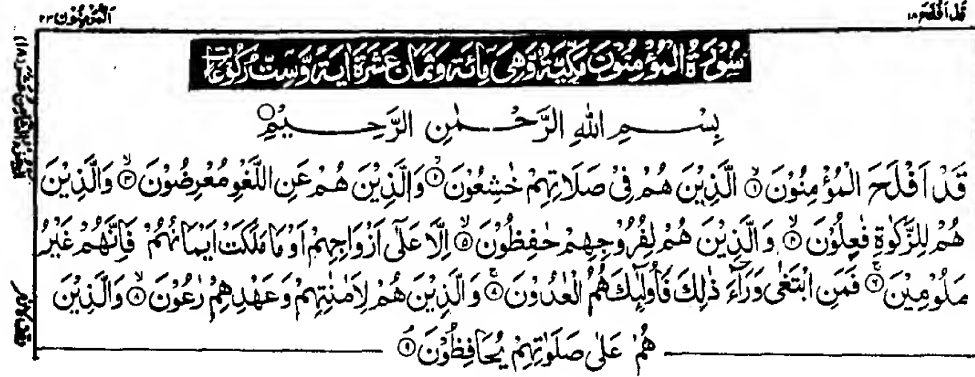 قَدْ اَفْلَحَ ١٨
اَلْمُؤْمِنُوْنَ ٢٣
سُوْرَةُ الْمُؤْمِنُوْنَ مَكِّيَّةٌ وَّهِيَ مِائَةٌ وَّثَمَانَ عَشَرَةَ اٰيَةً وَّسِتُّ رُكُوْعَاتٍ
بِسْمِ اللهِ الرَّحْمٰنِ الرَّحِيْمِ
قَدْ اَفْلَحَ الْمُؤْمِنُوْنَ ۙ﴿١﴾ الَّذِيْنَ هُمْ فِيْ صَلَاتِهِمْ خٰشِعُوْنَ ۙ﴿٢﴾ وَالَّذِيْنَ هُمْ عَنِ اللَّغْوِ مُعْرِضُوْنَ ۙ﴿٣﴾ وَالَّذِيْنَ
هُمْ لِلزَّكٰوةِ فٰعِلُوْنَ ۙ﴿٤﴾ وَالَّذِيْنَ هُمْ لِفُرُوْجِهِمْ حٰفِظُوْنَ ۙ﴿٥﴾ اِلَّا عَلٰٓى اَزْوَاجِهِمْ اَوْ مَا مَلَكَتْ اَيْمَانُهُمْ فَاِنَّهُمْ غَيْرُ
مَلُوْمِيْنَ ۚ﴿٦﴾ فَمَنِ ابْتَغٰى وَرَآءَ ذٰلِكَ فَاُولٰٓئِكَ هُمُ الْعٰدُوْنَ ۚ﴿٧﴾ وَالَّذِيْنَ هُمْ لِاَمٰنٰتِهِمْ وَعَهْدِهِمْ رٰعُوْنَ ۙ﴿٨﴾ وَالَّذِيْنَ
هُمْ عَلٰى صَلَوٰتِهِمْ يُحَافِظُوْنَ ﴿٩﴾